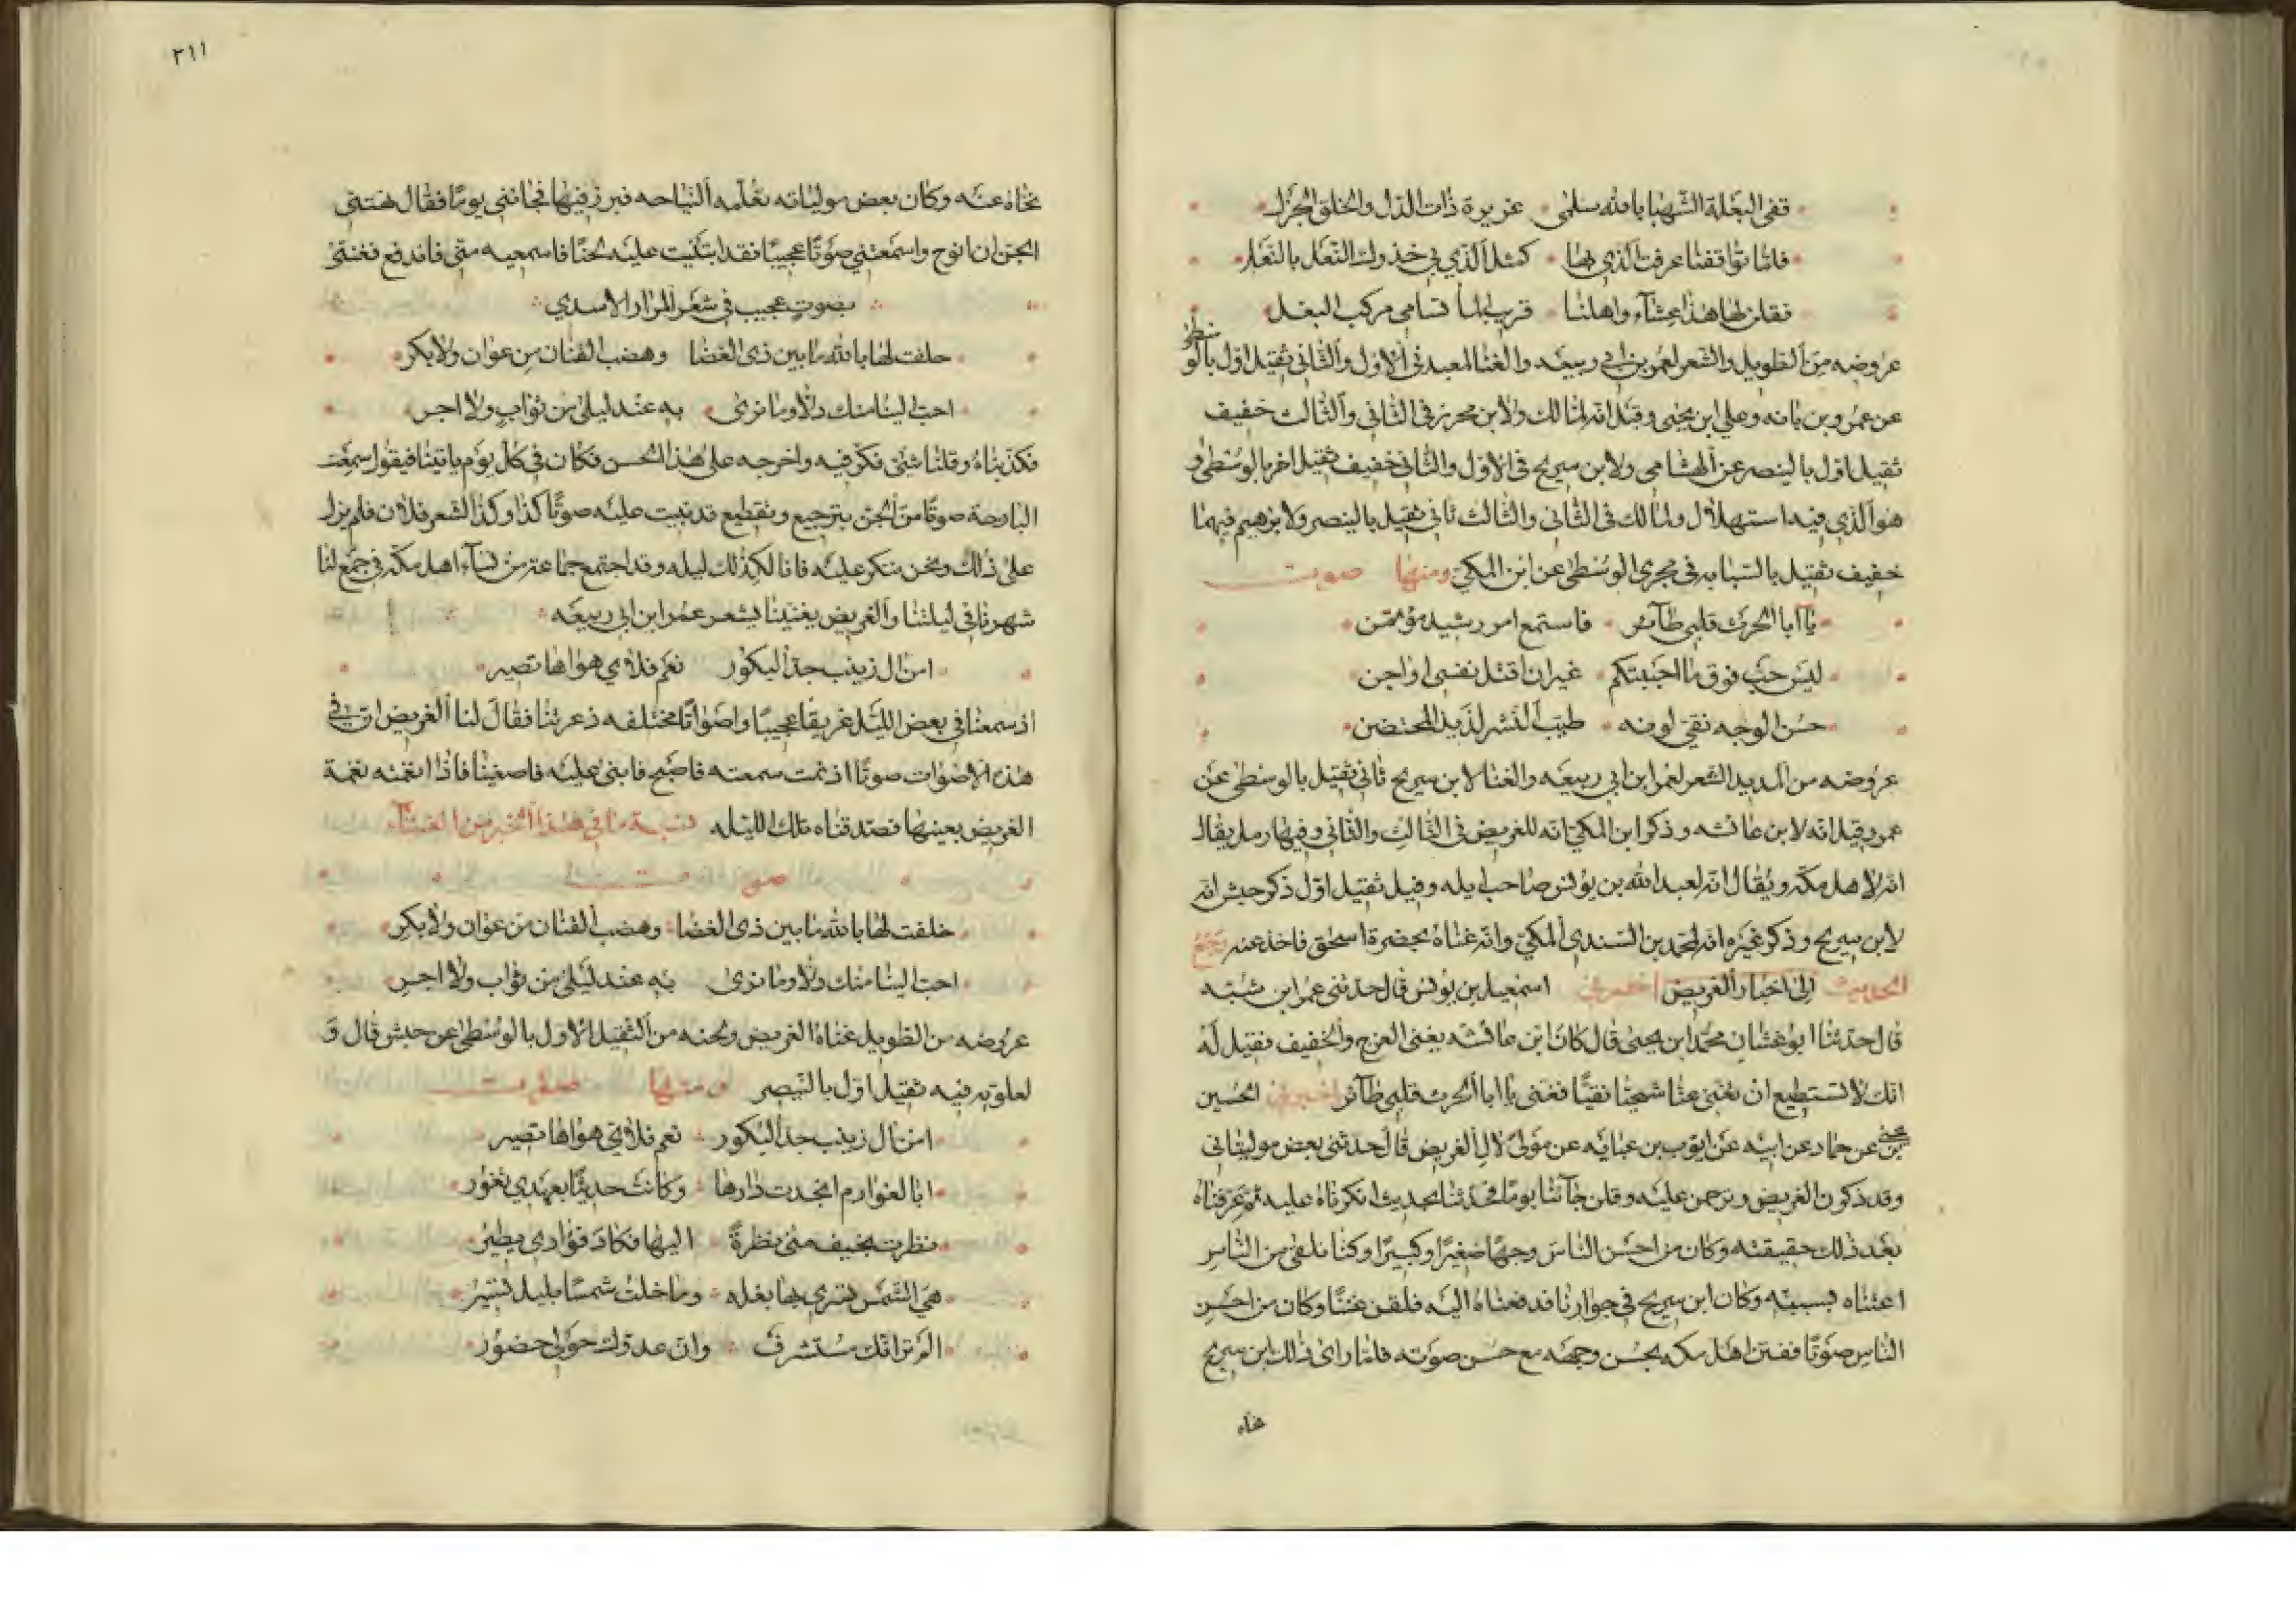 قفي البغلة الشهبا بالله سلمى غريرة ذات الدل والخلق الجزل
فلما تواقفنا عرفت الذي بها كمثل الذي بي حذوك النعل بالنعل
فقلن لها هذا عشآء واهلنا قريب الما تسامي مركب البغل
عروضه من الطويل والشعر لعمر بن ابي ربيعه والغنا لمعبد في الاول والثاني ثقيل اول بالوسطى
عن عمرو بن بانه وعلي ابن يحيى وقيل انه لمالك ولابن محرز في الثاني والثالث خفيف
ثقيل اول بالبنصر عن الهشامي ولابن سريج في الاول والثاني خفيف ثقيل اخر بالوسطى و
هو الذي فيه استهلال ولمالك في الثاني والثالث ثاني ثقيل بالبنصر ولابرهيم فيهما
خفيف ثقيل بالسبابه في مجرى الوسطى عن ابن المكي ومنها صوت
يا ابا الحرث قلبي طآئر فاستمع امر رشيد مؤتمن
ليس حب فوق ما احببتكم غير ان اقتل نفسي او اجن
حسن الوجه نقي لونه طيب النشر لذيذ المحتضن
عروضه من المديد الشعر لعمر ابن ابي ربيعه والغنا لابن سريج ثاني ثقيل بالوسطى عن
عمرو وقيل انه لابن عائشه وذكر ابن المكي انه للغريض في الثالث والثاني وفيها رمل يقال
انه لاهل مكه ويقال انه لعبد الله بن يونس صاحب ايله وفيل ثقيل اول ذكر حبش انه
لابن سريج وذكر غيره انه لمحمد بن السندي المكي وانه غناه بحضرة اسحق فاخذ عنه رجع
الحديث الى اخبار الغريض اخبرني اسمعيل بن يونس قال حدثني عمر ابن شبه
قال حدثنا ابو غسان محمد ابن يحيى قال كان ابن عائشه يغني الهزج والخفيف فقيل له
انك لا تستطيع ان تغني غنا شجيا نقيا فغنى يا ابا الحرث قلبي طآئر اخبرني الحسين
بن يحيى عن حماد عن ابيه عن ايوب بن عبايه عن مولى لال الغريض قال حدثني بعض موليناتي
وقد ذكرن الغريض وترحمن عليه وقلن جآءنا يوما فحدثنا بحديث انكرناه عليه ثم عرفناه
بعد ذلك حقيقته وكان من احسن الناس وجها صغيرا وكبيرا وكنا نلقى من الناس
اعتناه بسببه وكان ابن سريج في جوارنا فدفعناه اليه فلقن غنا وكان من احسن
الناس صوتا ففتن اهل مكه بحسن وجهه مع حسن صوته فلما راى ذلك ابن سريج
نحاه
٣١١
نحاه عنه وكان بعض مولياته تعلمه النياحه فبرز فيها فجانني يوما فقال نهتني
الجن ان انوح واسمعتني صوتا عجيبا فقد ابتنيت عليه لحنا فاسمعيه مني فاندفع فغنى
بصوت عجيب في شعر المرار الاسدي
حلفت لها بالله ما بين ذي الغضا وهضب القنان من عوان ولا بكر
احب الينا منك دلا وما نرى به عند ليلى من ثواب ولا اجر
فكذبناه وقلنا شئ فكر فيه واخرجه على هذا الحسن فكان في كل يوم ياتينا فيقول سمعت
البارحة صوتا من الجن بترجيع وتقطيع قد بنيت عليه صوتا كذا وكذا الشعر فلان فلم يزل
على ذلك ونحن ننكر عليه فانا لكذلك ليله وقد اجتمع جماعة من نسآء اهل مكه في جمع لنا
شهرنا في ليلتنا والغريض يغنينا بشعر عمر ابن ابي ربيعه
امن ال زينب جد البكور نعم فلاي هواها تصير
اذ سمعنا في بعض الليل عزيفا عجيبا واصواتا مختلفه ذعرتنا فقال لنا الغريض ان في
هذه الاصوات صوتا اذ نمت سمعته فاصبح فابني عليه فاصغينا فاذا انغمته نغمة
الغريض بعينها فصدقناه تلك الليله نسبة ما في هذا الخبر من الغنآء
صوت
حلفت لها بالله ما بين ذي الغضا وهضب القنان من عوان ولا بكر
احب الينا منك دلا وما نرى به عند ليلى من ثواب ولا اجر
عروضه من الطويل غناه الغريض ولحنه من الثقيل الاول بالوسطى عن حبش قال و
لعلويه فيه ثقيل اول بالبنصر ومنها صوت
امن ال زينب جد البكور نعم فلاي هواها تصير
ابا لغور ام انجدت دارها وكانت حديثا بعهدي تغور
نظرت بخيف منى نظرة اليها فكاد فؤادي يطير
هي الشمس تسري بها بغله وما خلت شمسا بليل تسير
الم تر انك مستشرف وان عدوك حولي حضور